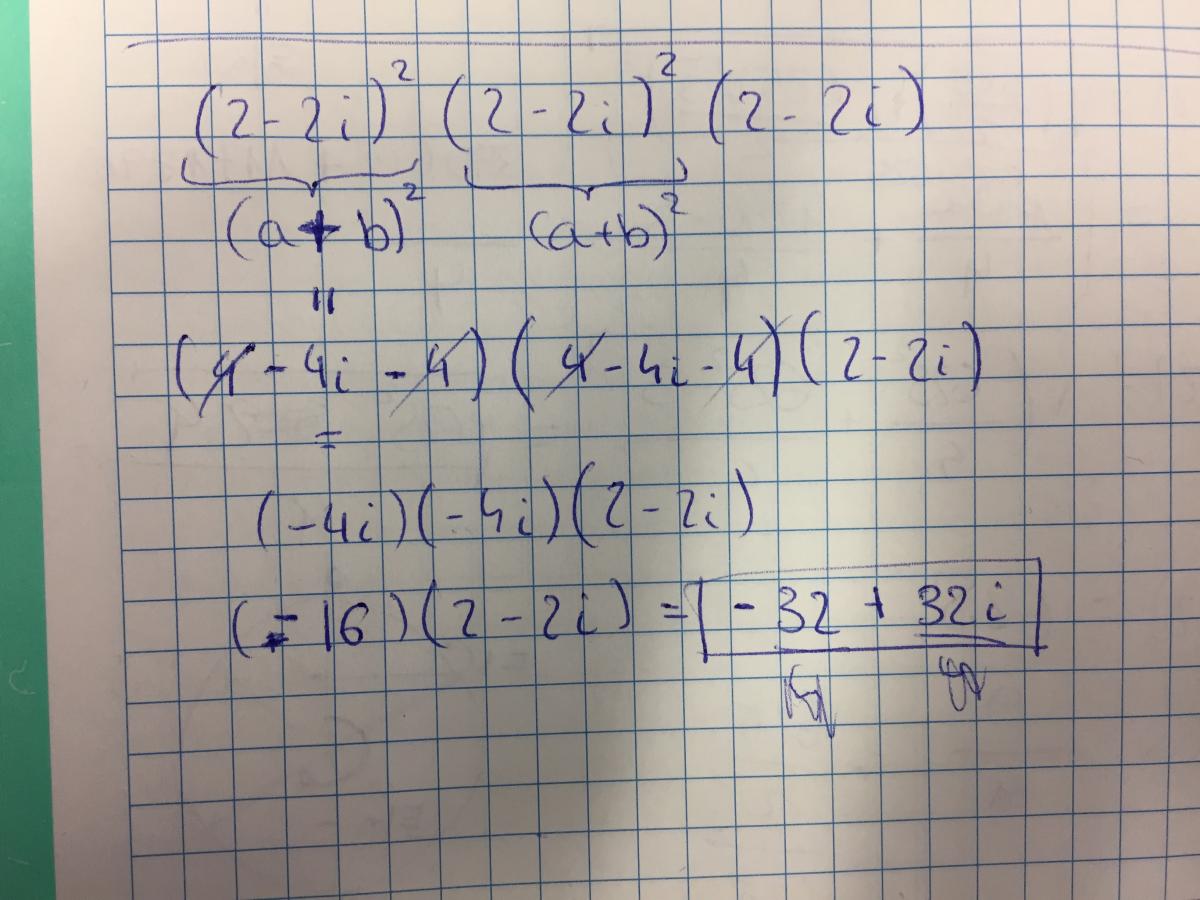 (2-2i)² (2-2i)² (2-2i)
(a+b)² (a+b)²
=
(4-4i-4)(4-4i-4)(2-2i)
=
(-4i)(-4i)(2-2i)
(-16)(2-2i) = -32 + 32i